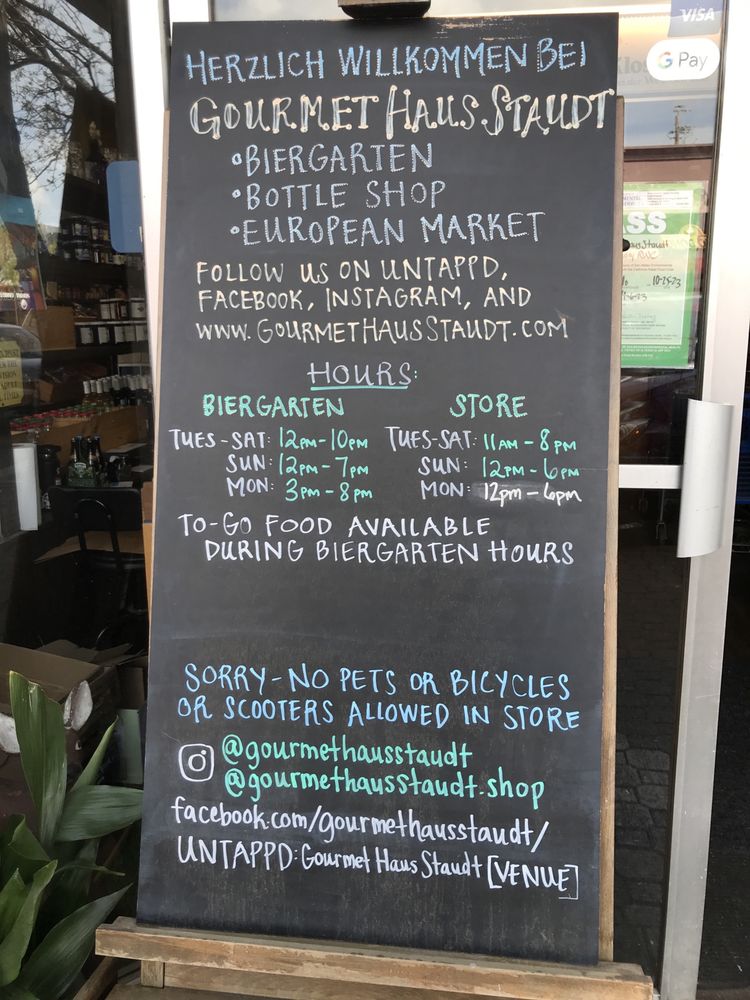 VISA
G Pay
HERZLICH WILLKOMMEN BEI
GOURMET HAUS STAUDT
•BIERGARTEN
•BOTTLE SHOP
•EUROPEAN MARKET
FOLLOW US ON UNTAPPD,
FACEBOOK, INSTAGRAM, AND
WWW.GOURMETHAUSSTAUDT.COM
HOURS:
BIERGARTEN STORE
TUES-SAT: 12PM-10PM TUES-SAT: 11AM-8PM
SUN: 12PM-7PM SUN: 12PM-6PM
MON: 3PM-8PM MON: 12PM-6PM
TO-GO FOOD AVAILABLE
DURING BIERGARTEN HOURS
SORRY-NO PETS OR BICYCLES
OR SCOOTERS ALLOWED IN STORE
@gourmethausstaudt
@gourmethausstaudt.shop
facebook.com/gourmethausstaudt/
UNTAPPD: Gourmet Haus Staudt [VENUE]